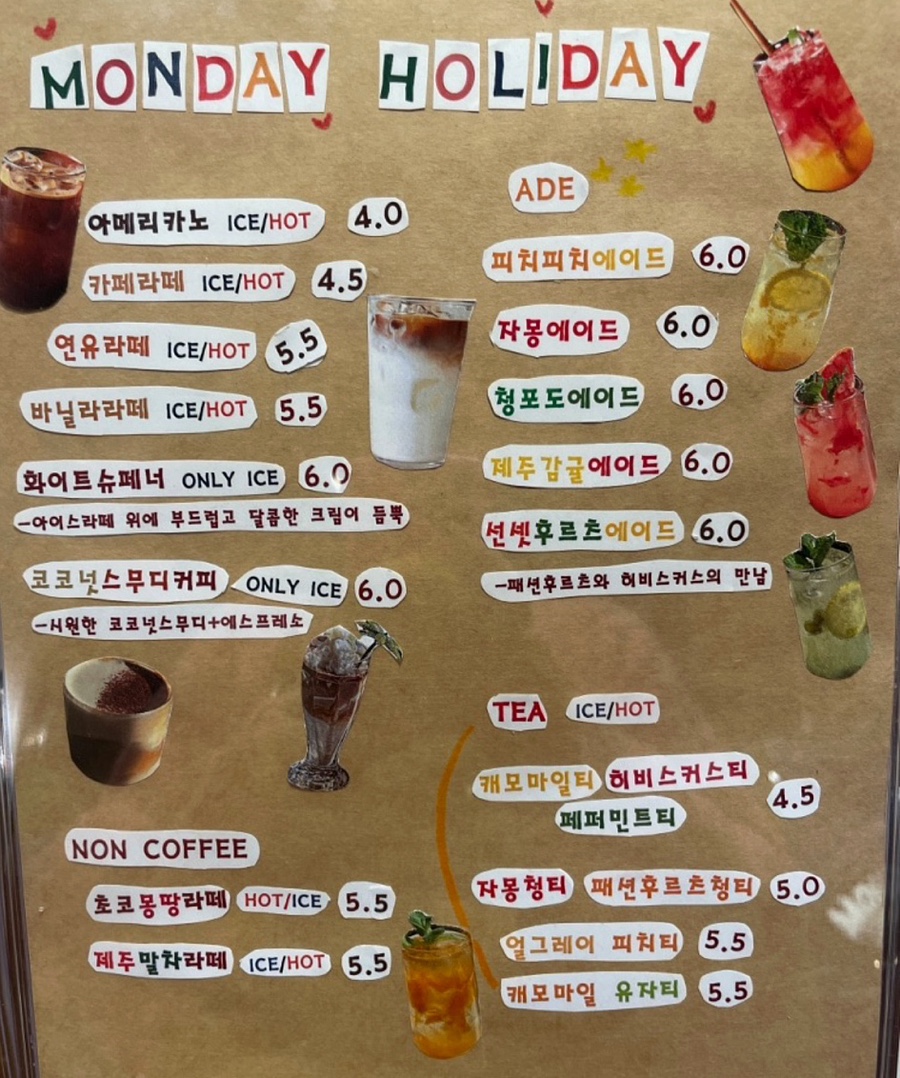 MONDAY HOLIDAY
아메리카노 ICE/HOT 4.0
카페라떼 ICE/HOT 4.5
연유라떼 ICE/HOT 5.5
바닐라라떼 ICE/HOT 5.5
화이트슈페너 ONLY ICE 6.0
-아이스라떼 위에 부드럽고 달콤한 크림이 듬뿍
코코넛스무디커피 ONLY ICE 6.0
-시원한 코코넛스무디+에스프레소
NON COFFEE
초코몽땅라떼 HOT/ICE 5.5
제주말차라떼 ICE/HOT 5.5
ADE
피치피치에이드 6.0
자몽에이드 6.0
청포도에이드 6.0
제주감귤에이드 6.0
선셋후르츠에이드 6.0
-패션후르츠와 히비스커스의 만남
TEA ICE/HOT
캐모마일티 히비스커스티 4.5
페퍼민트티
자몽청티 패션후르츠청티 5.0
얼그레이 피치티 5.5
캐모마일 유자티 5.5